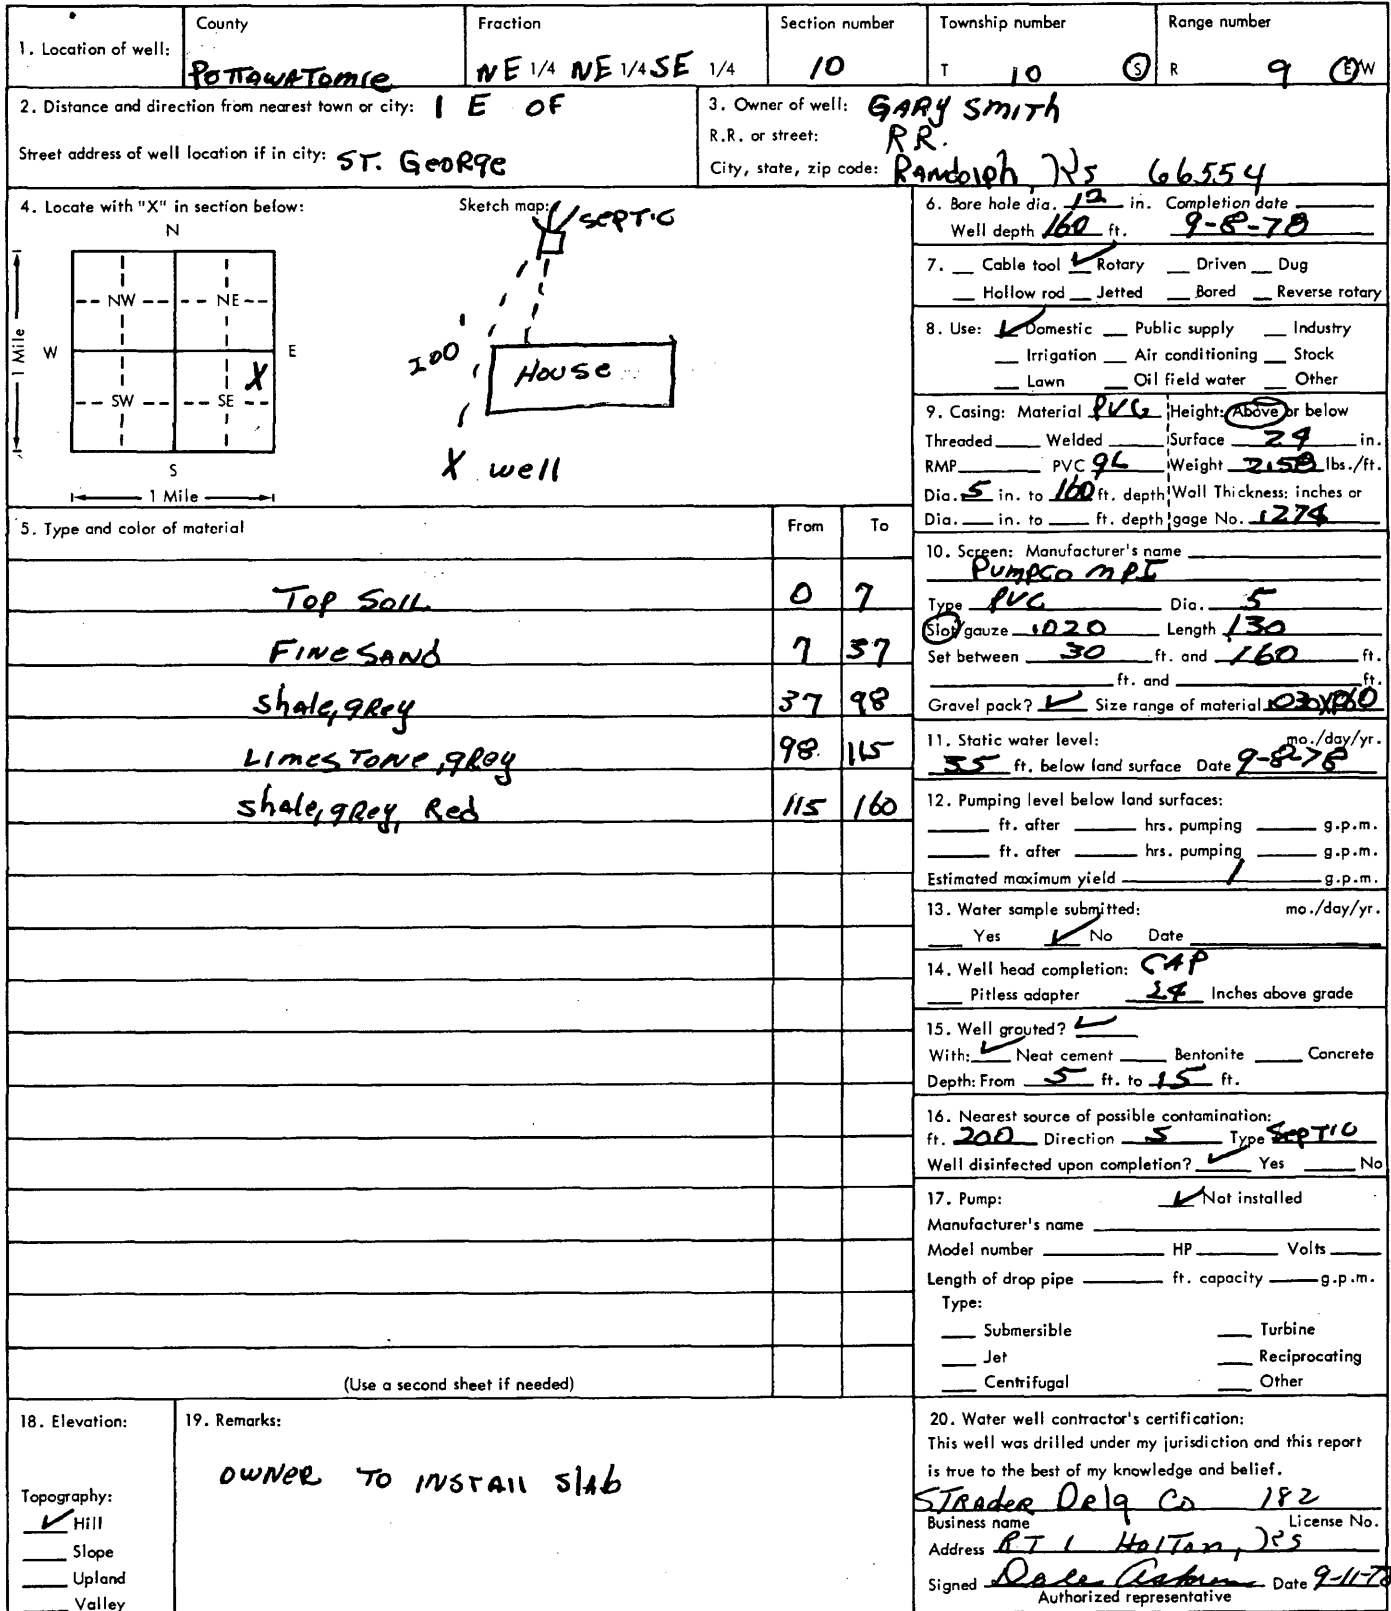 1. Location of well:
County
POTTAWATOMIE
Fraction
NE 1/4 NE 1/4 SE 1/4
Section number
10
Township number
T 10 S
Range number
R 9 E/W
2. Distance and direction from nearest town or city: 1 E OF
Street address of well location if in city: ST. GEORGE
3. Owner of well: GARY SMITH
R.R. or street: RR.
City, state, zip code: RANDOLPH, KS 66554
4. Locate with "X" in section below:
N
NW NE
W E
X
SW SE
S
1 Mile
1 Mile
Sketch map:
SEPTIC
200'
HOUSE
X well
5. Type and color of material From To
TOP SOIL 0 7
FINE SAND 7 37
shale, grey 37 98
LIMESTONE, grey 98 115
shale, grey, Red 115 160
(Use a second sheet if needed)
6. Bore hole dia. 12 in. Completion date
Well depth 160 ft. 9-8-78
7. Cable tool ✓ Rotary Driven Dug
Hollow rod Jetted Bored Reverse rotary
8. Use: ✓ Domestic Public supply Industry
Irrigation Air conditioning Stock
Lawn Oil field water Other
9. Casing: Material PVC Height: Above or below
Threaded Welded Surface 24 in.
RMP PVC GL Weight 2.58 lbs./ft.
Dia. 5 in. to 160 ft. depth Wall Thickness: inches or
Dia. in. to ft. depth gage No. .274
10. Screen: Manufacturer's name
PUMPCO MPI
Type PVC Dia. 5
Slot/gauze .020 Length 130
Set between 30 ft. and 160 ft.
ft. and ft.
Gravel pack? ✓ Size range of material .030X.060
11. Static water level: mo./day/yr.
35 ft. below land surface Date 9-8-78
12. Pumping level below land surfaces:
ft. after hrs. pumping g.p.m.
ft. after hrs. pumping g.p.m.
Estimated maximum yield 1 g.p.m.
13. Water sample submitted: mo./day/yr.
Yes ✓ No Date
14. Well head completion: CAP
Pitless adapter 24 Inches above grade
15. Well grouted? ✓
With: ✓ Neat cement Bentonite Concrete
Depth: From 5 ft. to 15 ft.
16. Nearest source of possible contamination:
ft. 200 Direction S Type SEPTIC
Well disinfected upon completion? ✓ Yes No
17. Pump: ✓ Not installed
Manufacturer's name
Model number HP Volts
Length of drop pipe ft. capacity g.p.m.
Type:
Submersible Turbine
Jet Reciprocating
Centrifugal Other
18. Elevation:
Topography:
✓ Hill
Slope
Upland
Valley
19. Remarks:
OWNER TO INSTALL SLAB
20. Water well contractor's certification:
This well was drilled under my jurisdiction and this report
is true to the best of my knowledge and belief.
STRADER DRLG CO 182
Business name License No.
Address RT 1 HOLTON, KS
Signed Date 9-11-78
Authorized representative